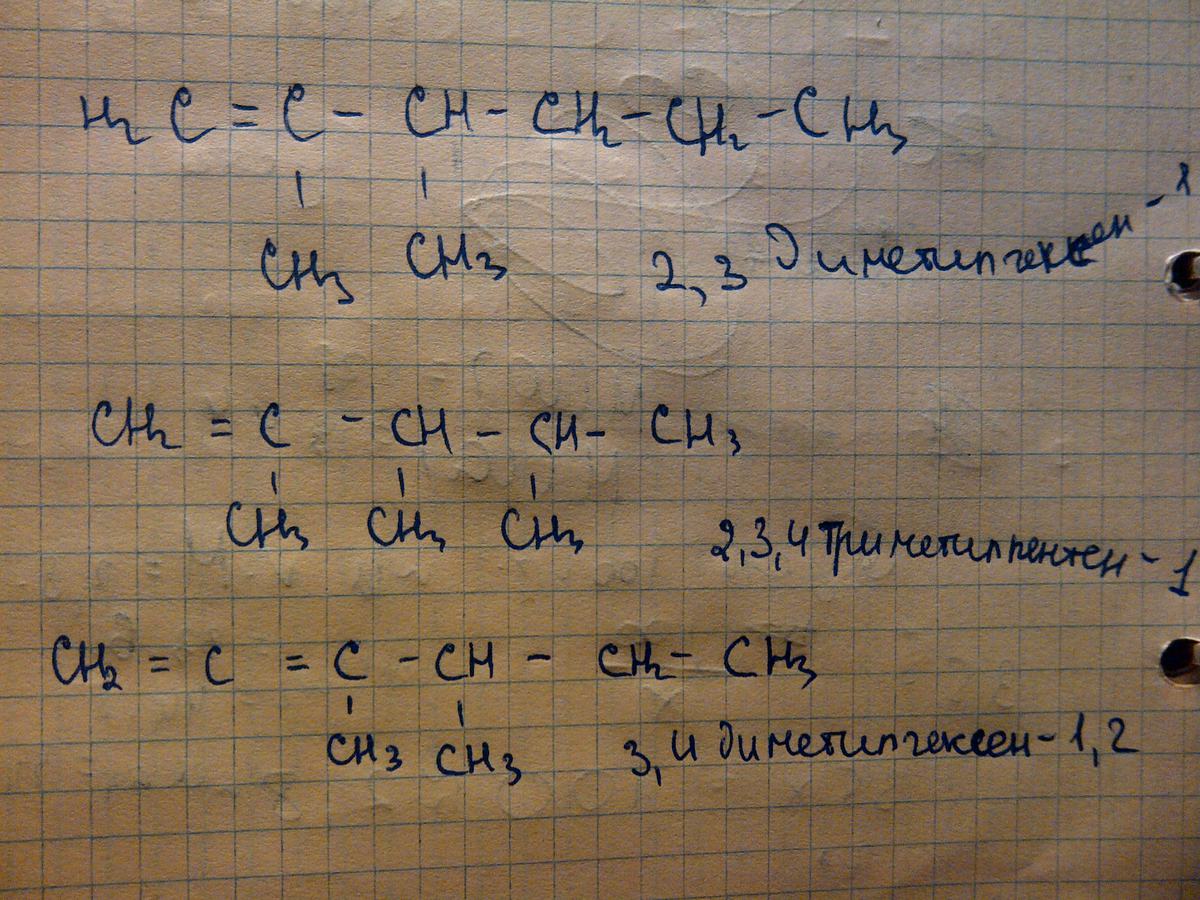 H₂C = C - CH - CH₂ - CH₂ - CH₃
CH₃ CH₃ 2,3 Диметилгексен - 1
CH₂ = C - CH - CH - CH₃
CH₃ CH₃ CH₃ 2,3,4 Триметилпентен - 1
CH₂ = C = C - CH - CH₂ - CH₃
CH₃ CH₃ 3,4 диметилгексен - 1,2